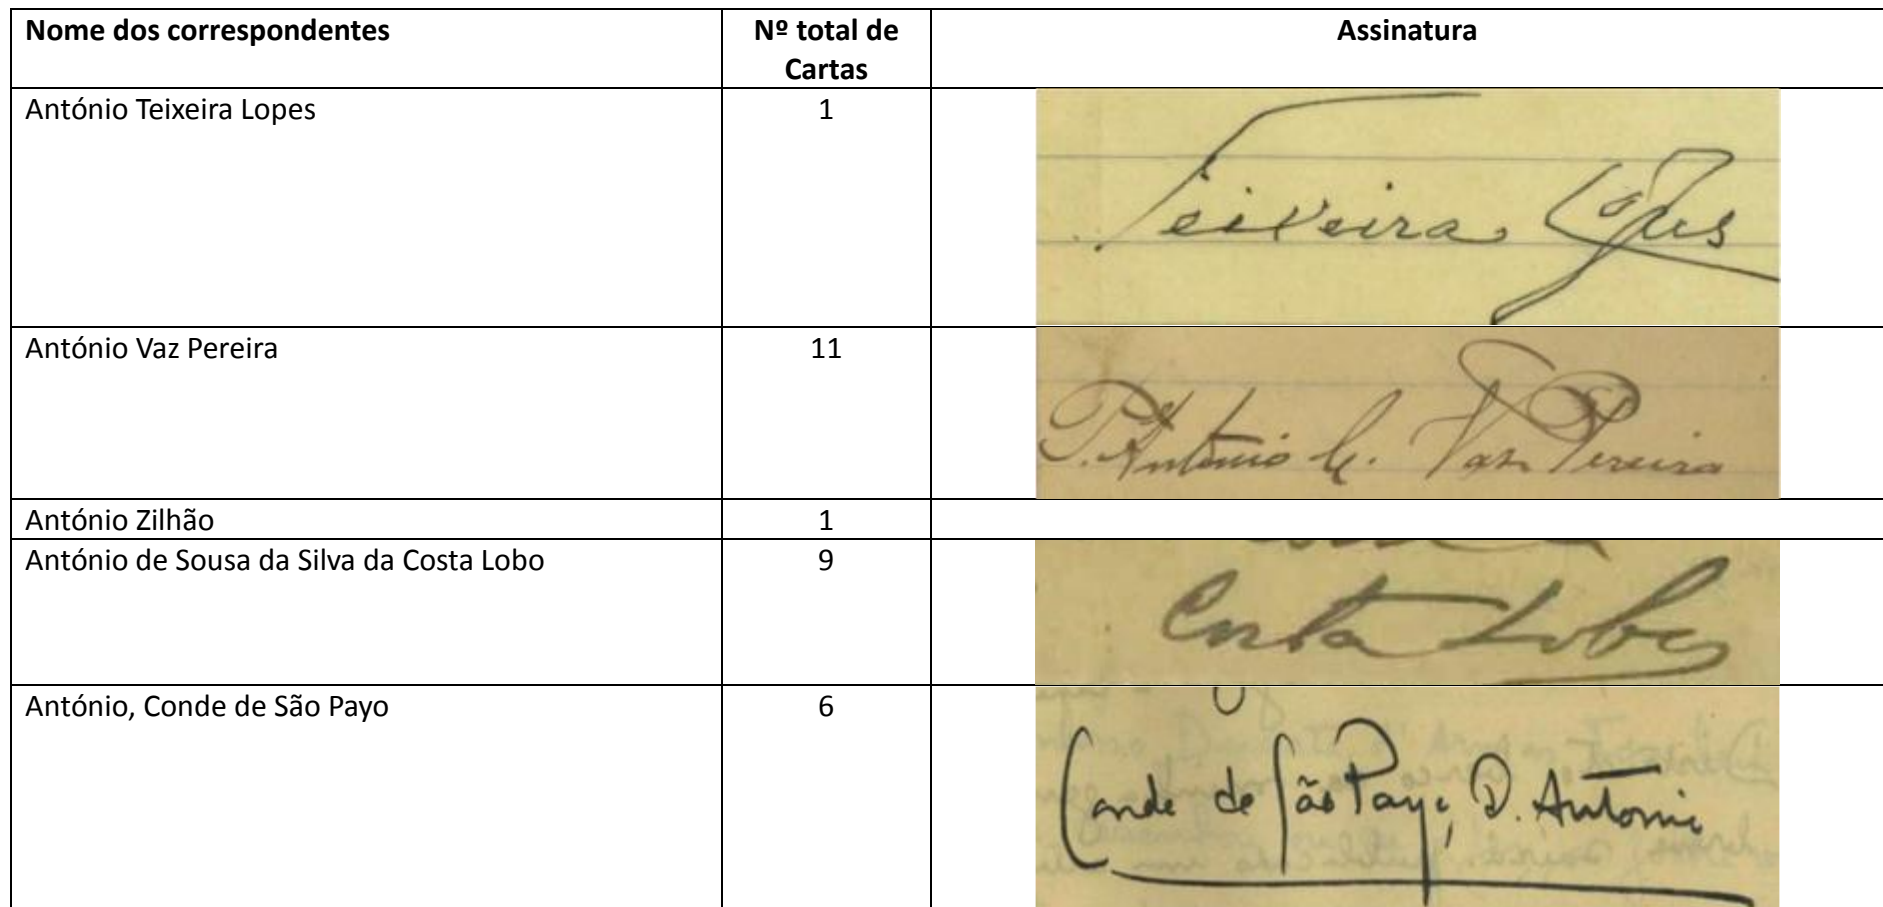 Nome dos correspondentes
Nº total de
Cartas
Assinatura
António Teixeira Lopes
1
Teixeira Lopes
António Vaz Pereira
11
P.e António C. Vaz Pereira
António Zilhão
1
António de Sousa da Silva da Costa Lobo
9
Costa Lobo
António, Conde de São Payo
6
Conde de São Payo, D. Antonio